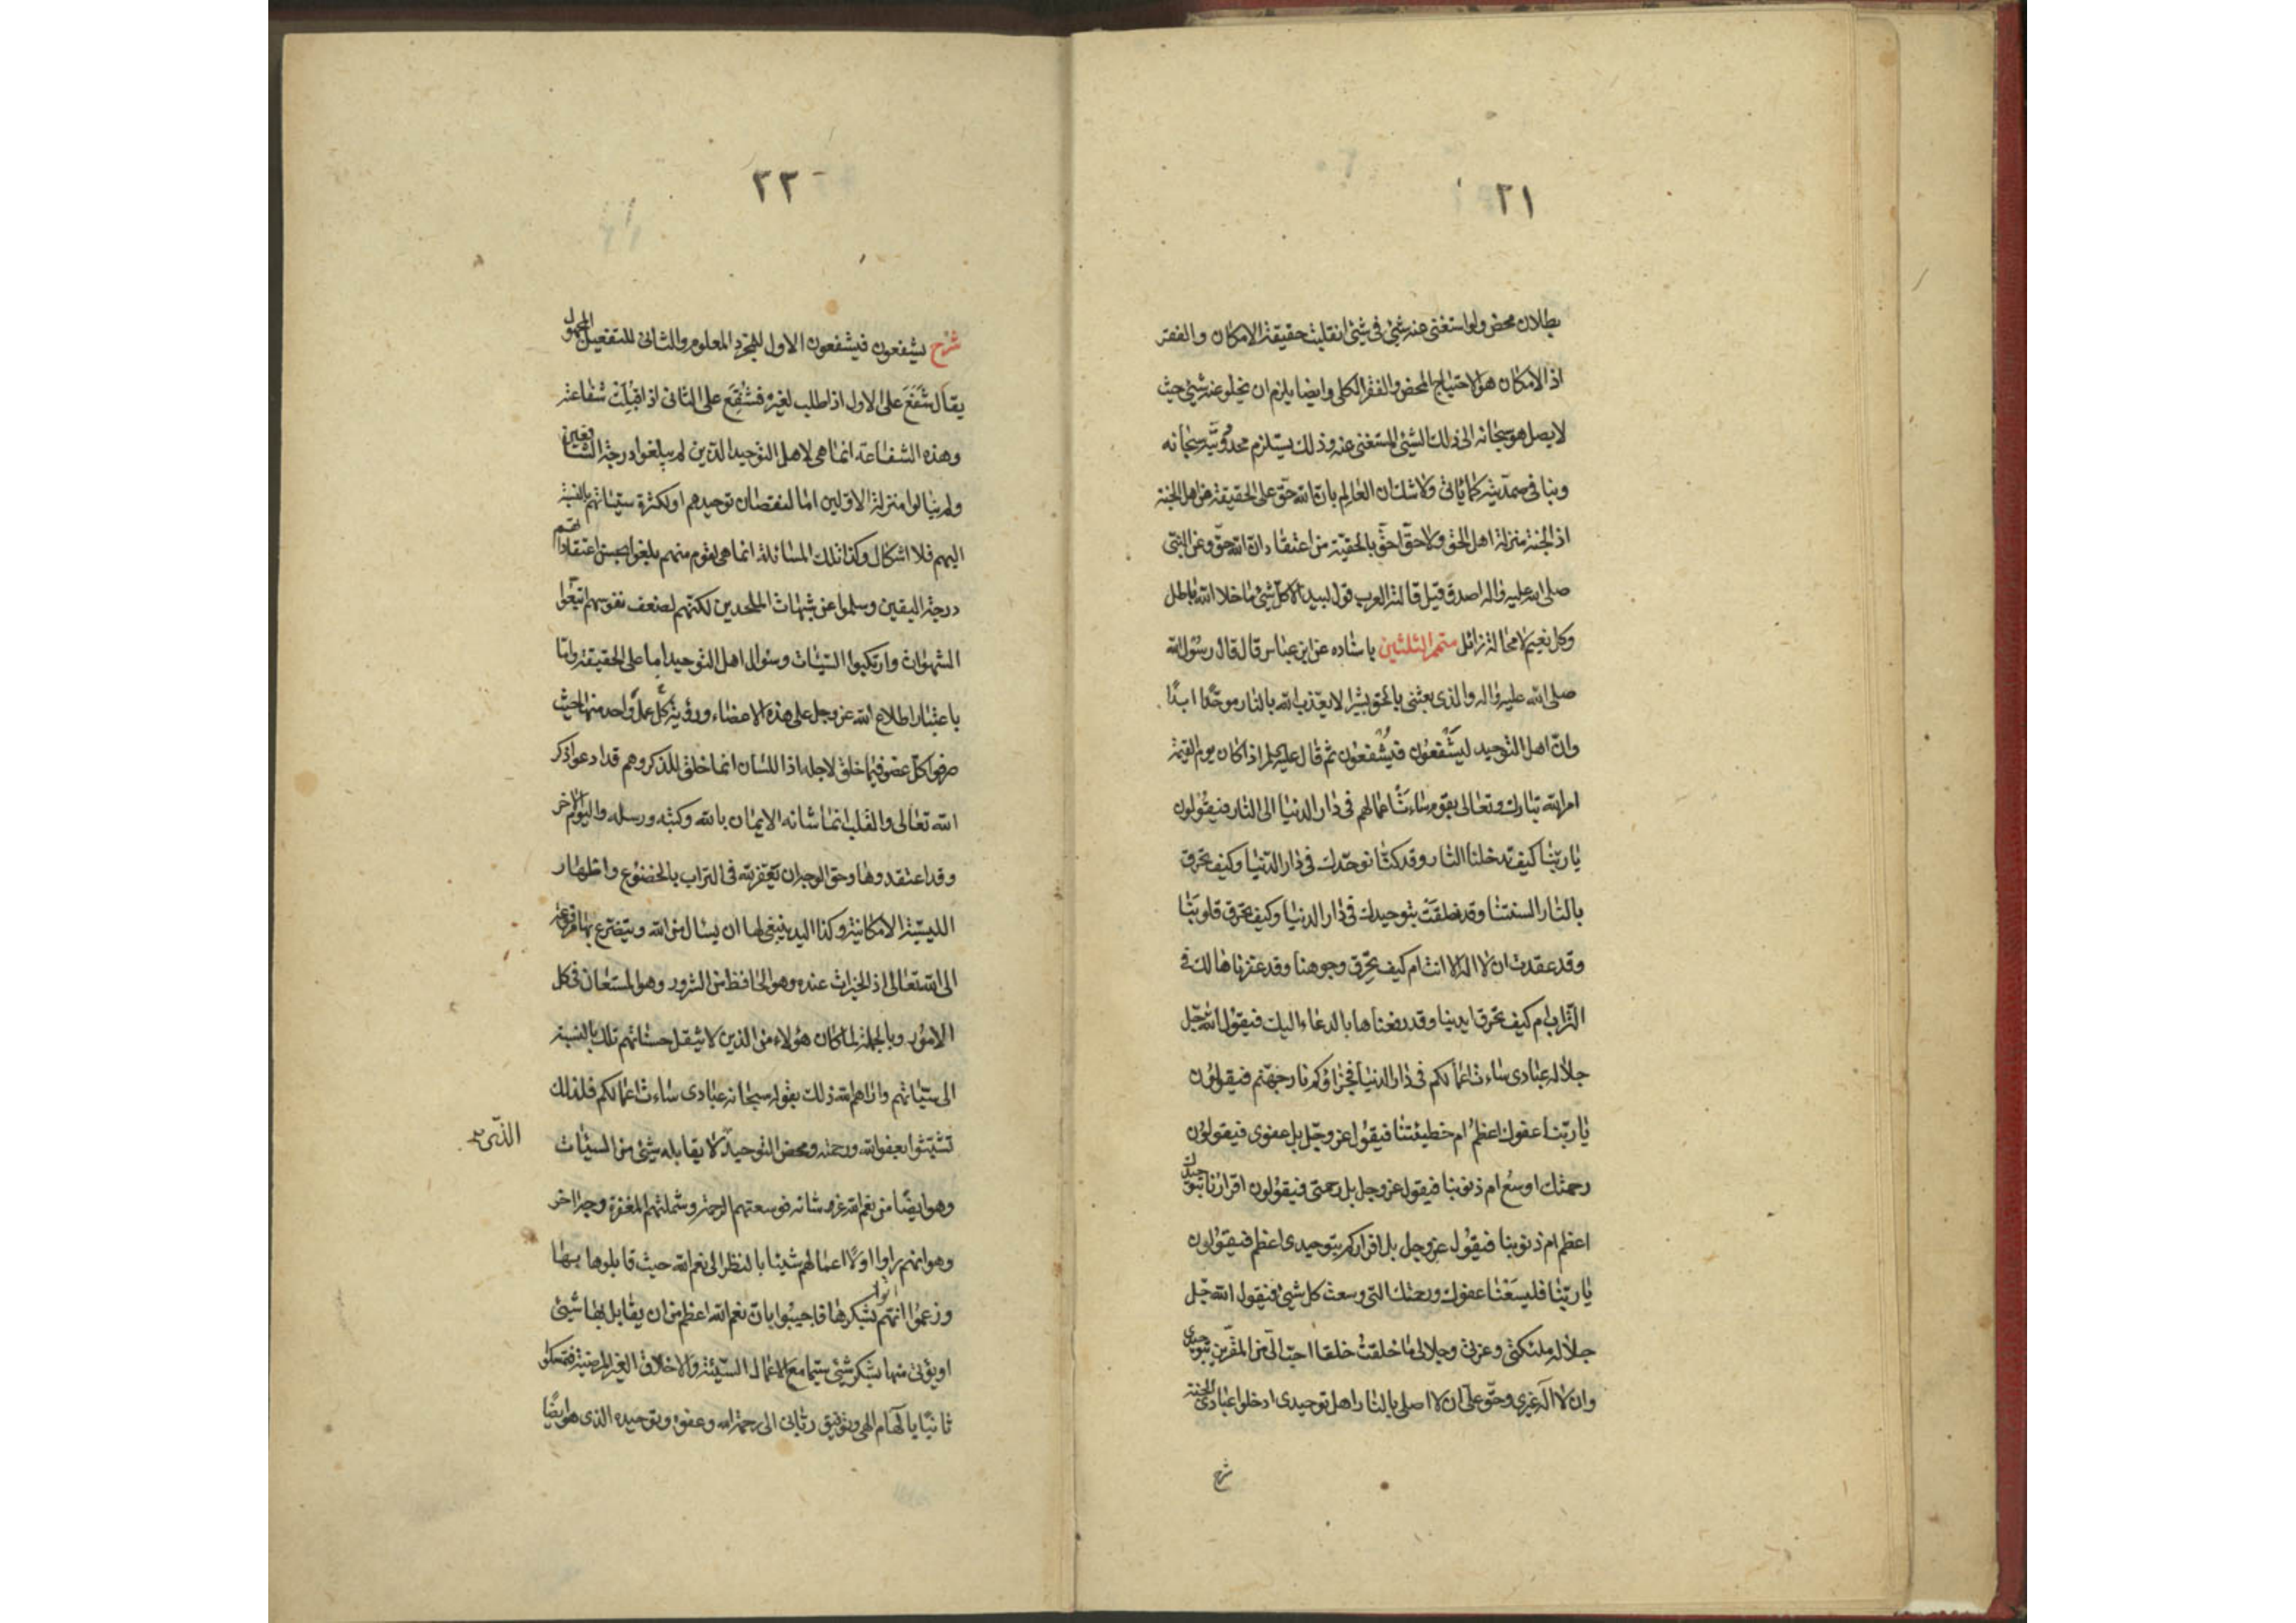 ٢١
بطلان محض ولو استغنى عنه شيئ فى شيئ انقلبت حقيقة الامكان والفقر
اذ الامكان هو الاحتياج المحض والفقر الكلى وايضا يلزم ان يخلو عنه شيئ حيث
لا يصل هو سبحانه الى ذلك الشيئ المستغنى عنه وذلك يستلزم محدوديّته سبحانه
وينافى صمديّته كما يأتى ولا شك ان العالم بان الله حق على الحقيقة من اهل الجنة
اذ الجنة منزلة اهل الحق ولا حقّ احقّ بالحقيّة من اعتقاد انّ الله حقّ وعن النبى
صلى الله عليه واله اصدق قيل قالته العرب قول لبيد الا كل شيئ ما خلا الله باطل
وكل نعيم لا محالة زائل متمم الثلثين باسناده عن ابن عباس قال قال رسول الله
صلى الله عليه واله والذى بعثنى بالحق بشيرا لا يعذب الله بالنار موحّدا ابدًا
وانّ اهل التوحيد ليَشفعون فيُشفعون ثم قال عليه السلم اذا كان يوم القيمة
امر الله تبارك وتعالى بقوم ساءت اعمالهم فى دار الدنيا الى النار فيقولون
يا ربّنا كيف تدخلنا النار وقد كنّا نوحّدك فى دار الدّنيا وكيف تحرق
بالنار السنتنا وقد نطقت بتوحيدك فى دار الدنيا وكيف تحرق قلوبنا
وقد عقدت ان لا اله الا انت ام كيف تحرق وجوهنا وقد عفرناها لك فى
التراب ام كيف تحرق ايدينا وقد رفعناها بالدعاء اليك فيقول الله جلّ
جلاله عبادى ساءت اعمالكم فى دار الدنيا فجزاؤكم نار جهنّم فيقولون
يا ربّنا عفوك اعظم ام خطيئتنا فيقول عز وجلّ بل عفوى فيقولون
رحمتك اوسع ام ذنوبنا فيقول عز وجل بل رحمتى فيقولون اقرارنا بتوحيدك
اعظم ام ذنوبنا فيقول عز وجل بل اقراركم بتوحيدى اعظم فيقولون
يا ربّنا فليسعنا عفوك ورحمتك التى وسعت كل شيئ فيقول الله جلّ
جلاله ملئكتى وعزتى وجلالى ما خلقت خلقا احبّ الىّ من المقرّين بتوحيدى
وان لا اله غيرى وحق علىّ ان لا اصلى بالنار اهل توحيدى ادخلوا عبادى الجنة
شرح
٢٢
شرح يشفعون فيشفعون الاول للمجرد المعلوم والثانى للتفعيل المجهول
يقال شَفَعَ على الاول اذا طلب لغيره فشُفِّعَ على الثانى اذا قُبِلَت شفاعته
وهذه الشفاعة انما هى لاهل التوحيد الذين لم يبلغوا درجة الشافعين
ولم ينالوا منزلة الاوّلين اما لنقصان توحيدهم او لكثرة سيّئاتهم بالنسبة
اليهم فلا اشكال وكذا تلك المسائلة انما هى لقوم منهم بلغوا بحسن اعتقاداتهم
درجة اليقين وسلموا عن شبهات الملحدين لكنهم لضعف نفوسهم اتبعوا
الشهوات وارتكبوا السيّئات وسؤال اهل التوحيد اما على الحقيقة واما
باعتبار اطلاع الله عز وجل على هذه الاعضاء ورؤيته كل عمل واحد منها حيث
صرفوا كل عضو فيما خلق لاجله اذ اللسان انما خلق للذكر وهم قد ادعوا ذكر
الله تعالى والقلب انما شانه الايمان بالله وكتبه ورسله واليوم الاخر
وقد اعتقدوها وحق الوجه ان تعفّر به فى التراب بالخضوع واظهار
الليسيّة الامكانية وكذا اليد ينبغى لها ان يسال من الله ويتضرع بها
الى الله تعالى اذ الخيرات عنده وهو الحافظ من الشرور وهو المستعان فى كل
الامور وبالجملة لما كان هؤلاء من الذين لا يثقل حسناتهم تلك بالنسبة
الى سيّئاتهم واراهم الله ذلك بقوله سبحانه عبادى ساءت اعمالكم فلذلك
تشبّثوا بعفو الله ورحمته ومحض التوحيد لا يقابله شيئ من السيئات
الذى
وهو ايضًا من نعم الله عز شانه فوسعتهم الرحمة وشملتهم المغفرة وجه اخر
وهو انهم راوا اولًا اعمالهم شيئا بالنظر الى نعم الله حيث قابلوها بها
وزعموا انهم اتوا بشكرها فاجيبوا بان نعم الله اعظم من ان يقابل بها شيئ
او يؤتى منها بشكر شيئ سيما مع الاعمال السيّئة والاخلاق الغير المرضية فتمسكوا
ثانيًا بالهام الهى وتوفيق ربّانى الى رحمة الله وعفوه وتوحيده الذى هو ايضًا